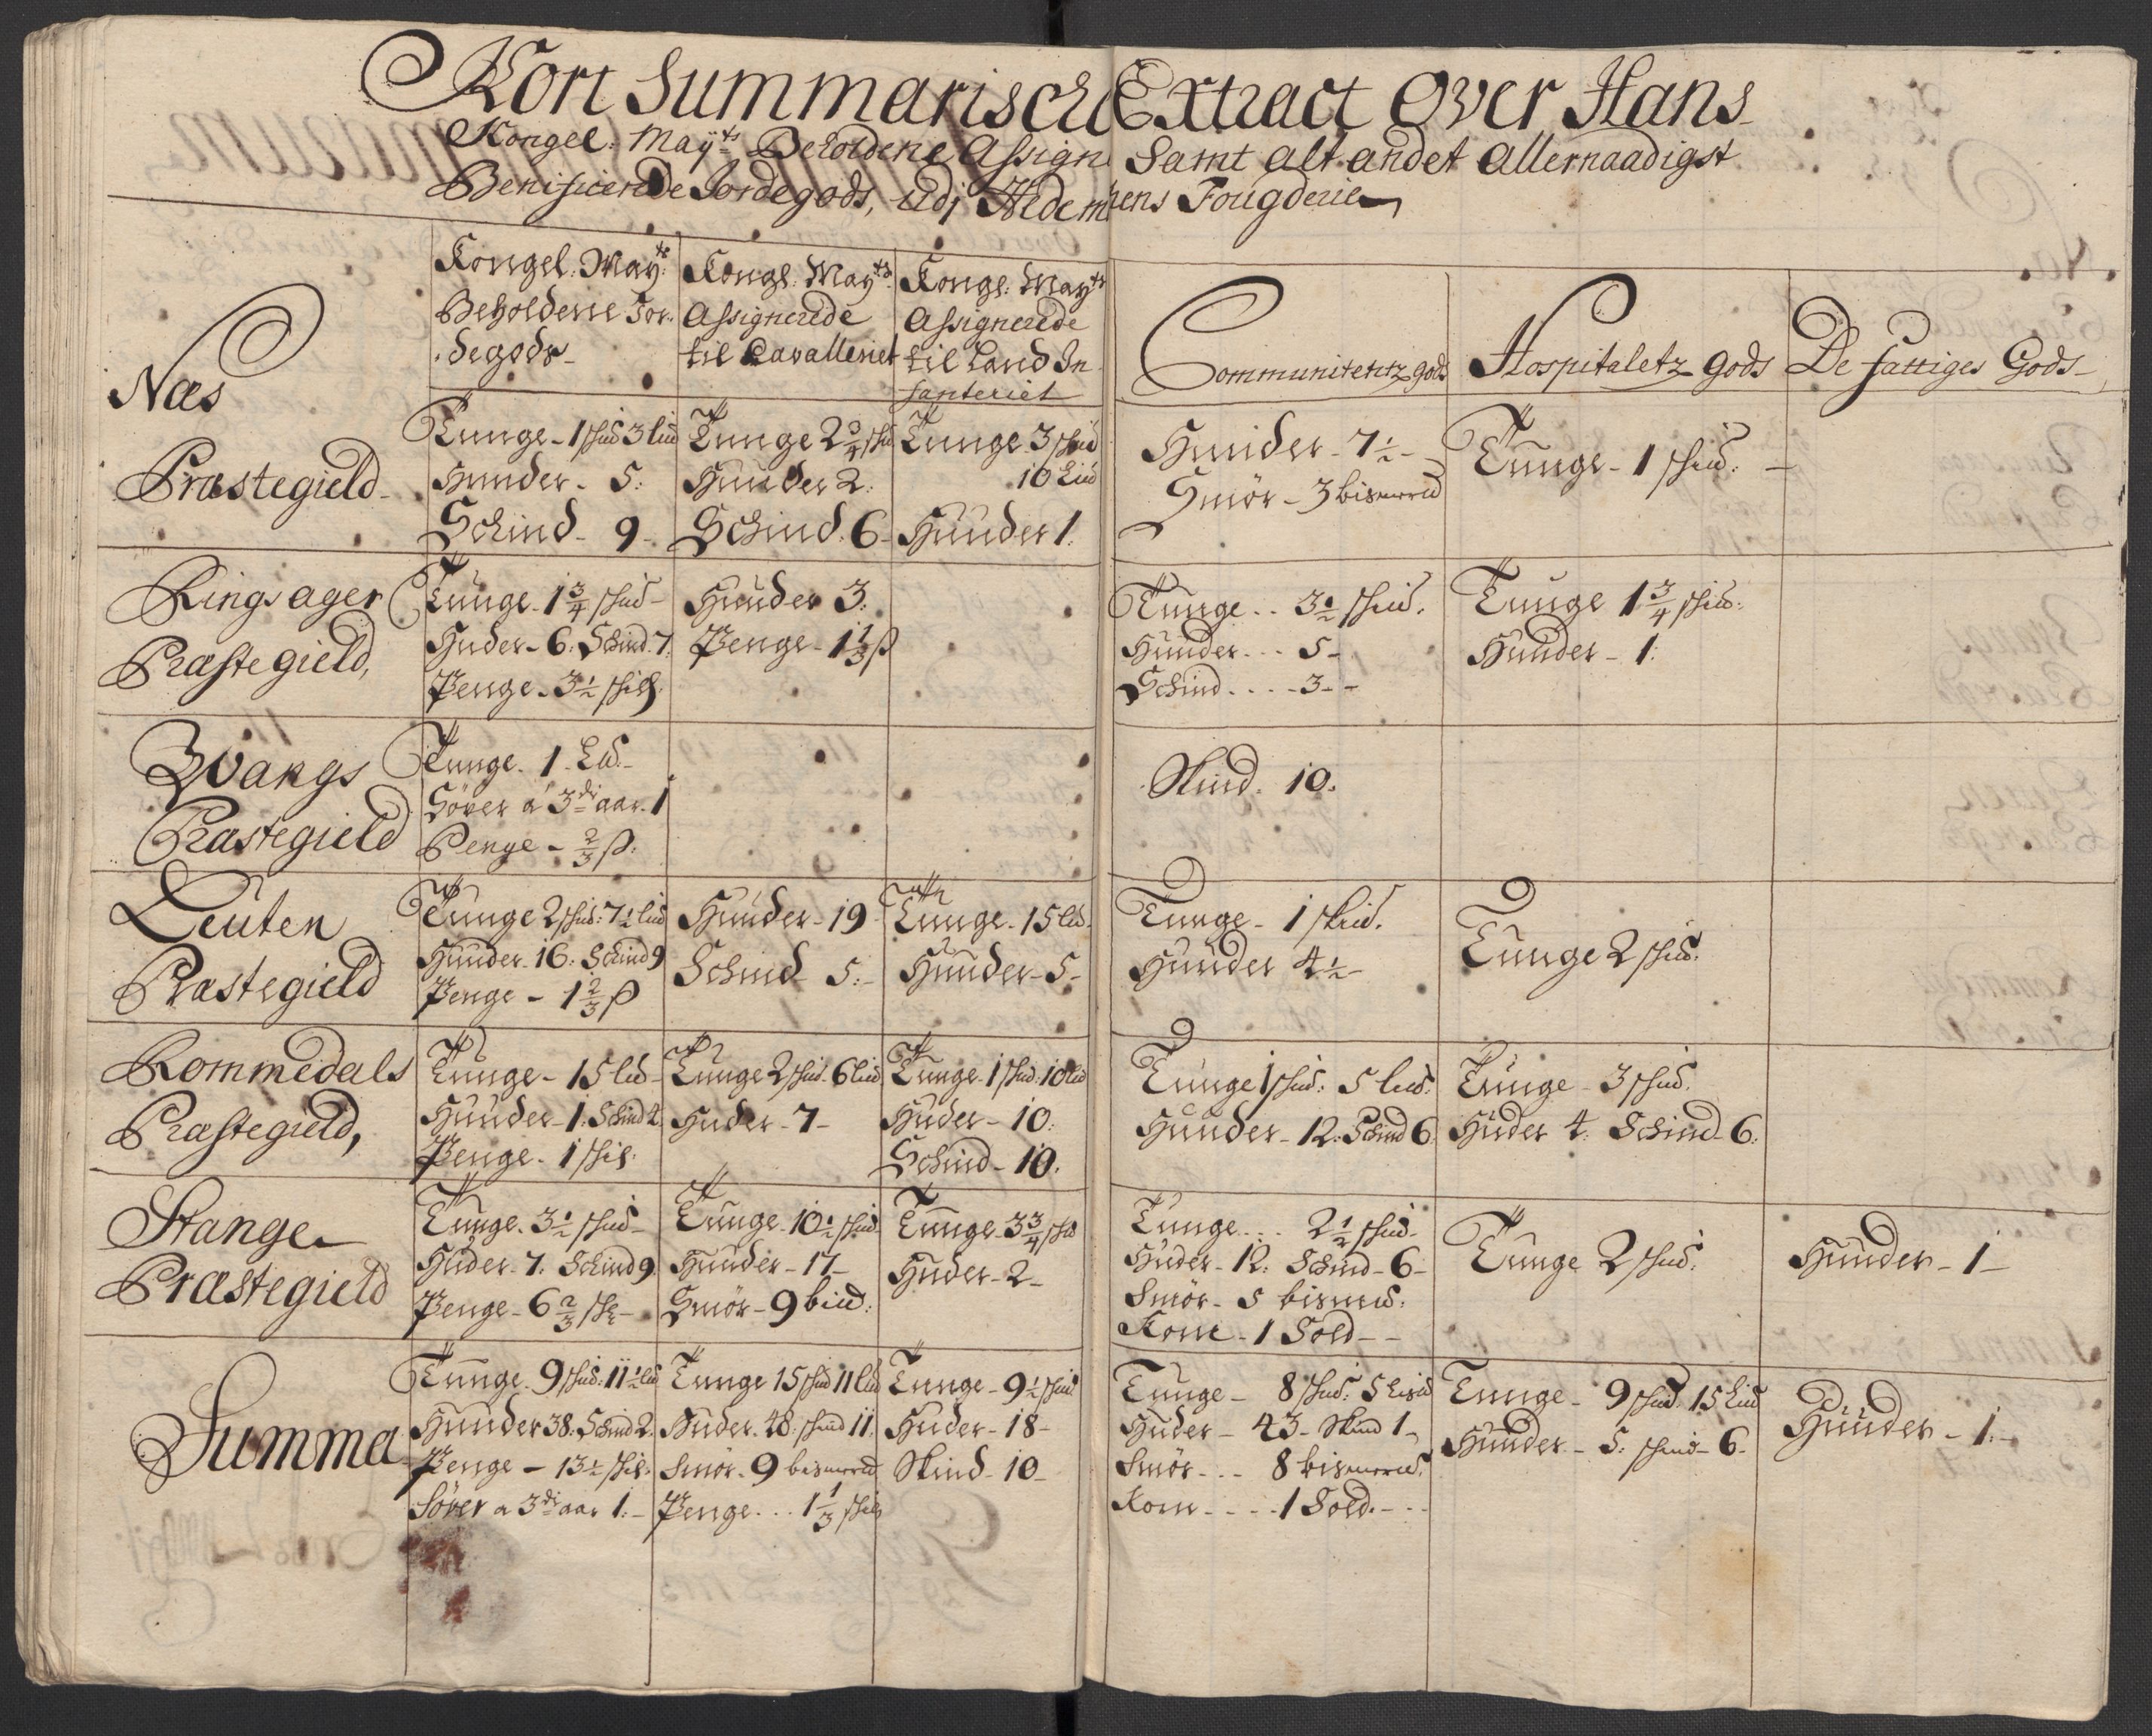 Kort Summarische Extract Over Hans
Kongel: Mayts Beholdene Assign Samt alt andet allernaadigst
Benificerede Jordegods, udj Hedemarkens Fougderie
Kongel: Mayts
Beholdene Jor-
degods
Kongl: Mayts
Assignerede
til Cavalleriet
Kongl: Mayts
Assignerede
til Land In
fanteriet
Communitetz gods
Hospitaletz gods
De fattiges Gods
Næs
Præstegield
Tunge - 1 shud 3 lüd
Hunder - 5:
Schind - 9-
Tunge 2 3/4 shd
Hunder 2:
Schind. 6-
Tunge 3 shüd
10 Lüd
Hünder 1.
Hunider - 7 1/2 -
Smör - 3 bismerud
Tünge - 1 shüd: -
Ringsager
Præstegield,
Tünge - 1 3/4 shüd -
Huder - 6: Schind. 7.
Penge - 3 1/2 shilf.
Hünder 3.
Penge - 1 1/3 β
Tünge .. 3 1/2 shüd.
Hünder ... 5-
Schind .... 3--
Tünge 1 3/4 shüd:
Hünder - 1:
Wangs
Præstegield
Tunge. 1 Ld.-
Söver a 3di aar. 1
Penge - 2/3 β.
Skind. 10.
Leuten
Præstegield
Tünge 2 shüd: 7 1/2 lüd
Hünder. 16: Schind 9
Penge - 1 2/3 β
Hünder - 19
Schind 5:-
Tünge - 15 lüd.
Hünder - 5-
Tunge - 1 skud.
Hünder 4 1/2 -
Tünge 2 shüd.
Rommedals
Præstegield,
Tünge - 15 lüd -
Hünder - 1: Schind 4.
Penge - 1 shil:
Tünge 2 shüd. 6 lüd
Huder - 7-
Tünge. 1 shüd: 10 lüd
Huder - 10:
Schind - 10.
Tünge 1 shüd: 5 lüd:
Hünder - 12: Schind 6.
Tünge - 3 shüd.
Hüder 4: Schind - 6:
Stange
Præstegield
Tünge. 3 1/2 shüd -
Hüder - 7: Schind 9.
Penge - 6 2/3 sh -
Tünge. 10 1/2 shüd
Hünder - 17-
Smör - 9 biüd:
Tünge - 3 3/4 shd
Huder - 2-
Tunge .... 2 1/2 shüd -
Hüder - 12: Schind - 6-
Smör - 5 bismrd:
Korne - 1 Sold - -
Tünge 2 shüd.
Hünder - 1-
Summa
Tünge. 9 shüd: 11 1/2 lüd
Hünder 38: Schind 2.
Penge - 13 1/2 shil:
Söver a 3di aar 1:-
Tunge 15 shüd 11 lüd
Huder. 48: shind 11.
Smör - 9 bismerud
Penge ... 1 1/3 shil
Tunge - 9 1/2 shüd
Huder - 18-
Skind - 10-
Tünge - 8 shüd: 5 Lisüd
Hüder - 43 - Skind 1-
Smör - .. 8 bismerud.
Korn - - - - 1 Sold. - - -
Tunge - 9 shud: 15 Lüd
Hünder - 5: shind - 6-
Hünder - 1:-